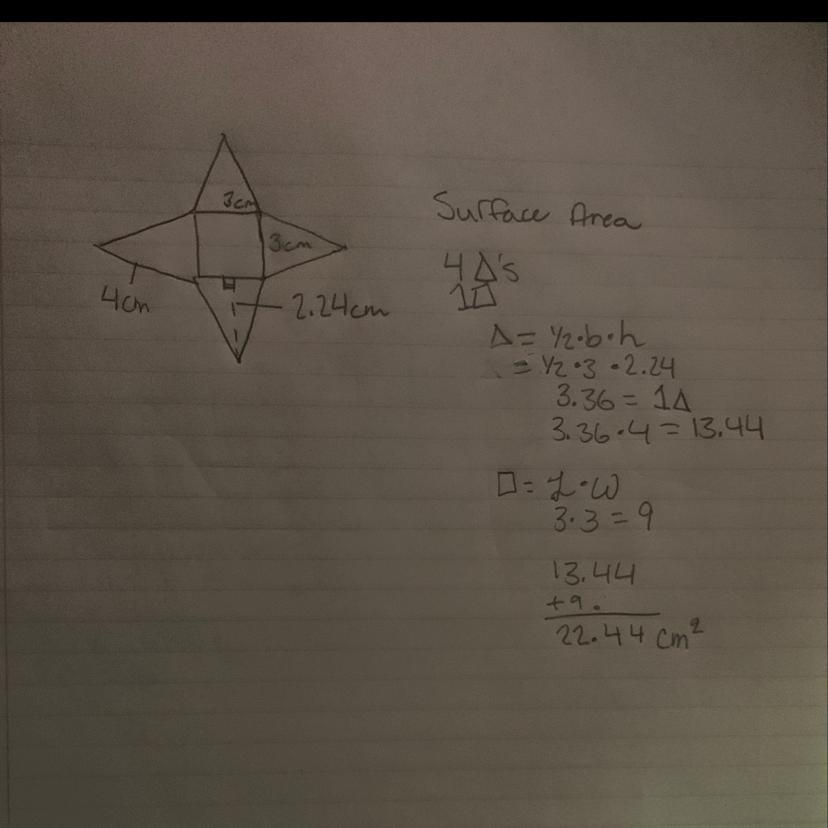 3cm
3cm
4cm
2.24cm
Surface Area
4 Δ's
1□
Δ = ½·b·h
= ½·3·2.24
3.36 = 1Δ
3.36·4 = 13.44
□ = L·W
3·3 = 9
13.44
+9.
22.44 cm²